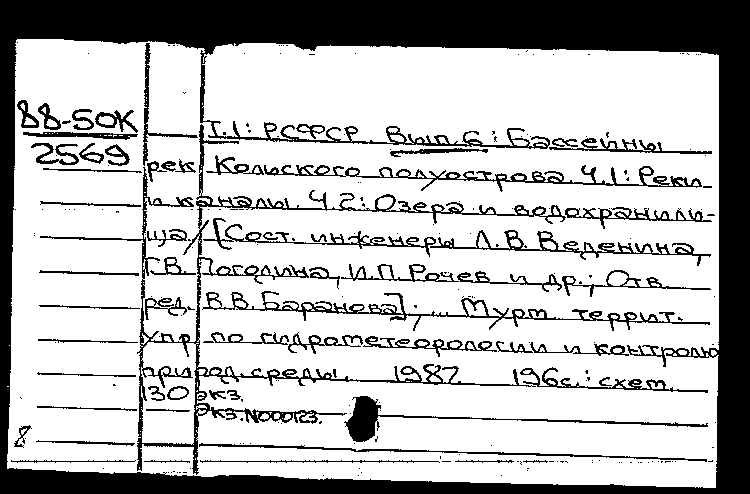 88-50К
2569
Т.1: РСФСР. Вып.6: Бассейны
рек Кольского полуострова. Ч.1: Реки
и каналы. Ч.2: Озера и водохранили-
ща / [Сост. инженеры Л.В. Веденина,
Г.В. Погодина, И.П. Рочев и др.; Отв.
ред. В.В. Баранова]; ... Мурм. террит.
упр. по гидрометеорологии и контролю
природ. среды. 1987. 196с.: схем.
130 экз.
Экз. N000123.
8